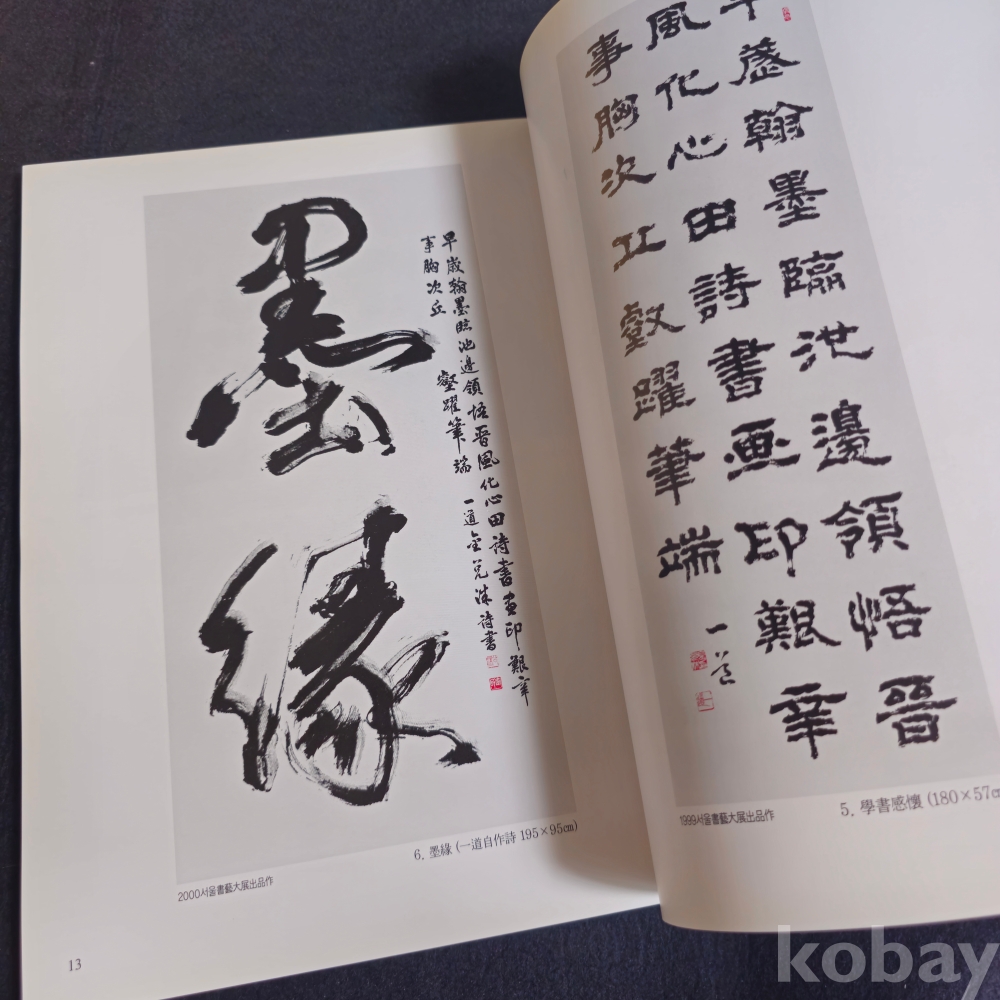 早歲翰墨臨池邊領悟晉
風化心田詩書画印艱辛
事胸次丘壑躍筆端
一道
5. 學書感懷 (180×57cm
1999서울書藝大展出品作
墨緣
早歲翰墨臨池邊領悟晉風化心田詩書畫印艱辛
事胸次丘壑躍筆端 一道金兌洙詩書
6. 墨緣 (一道自作詩 195×95cm)
2000서울書藝大展出品作
13
kobay